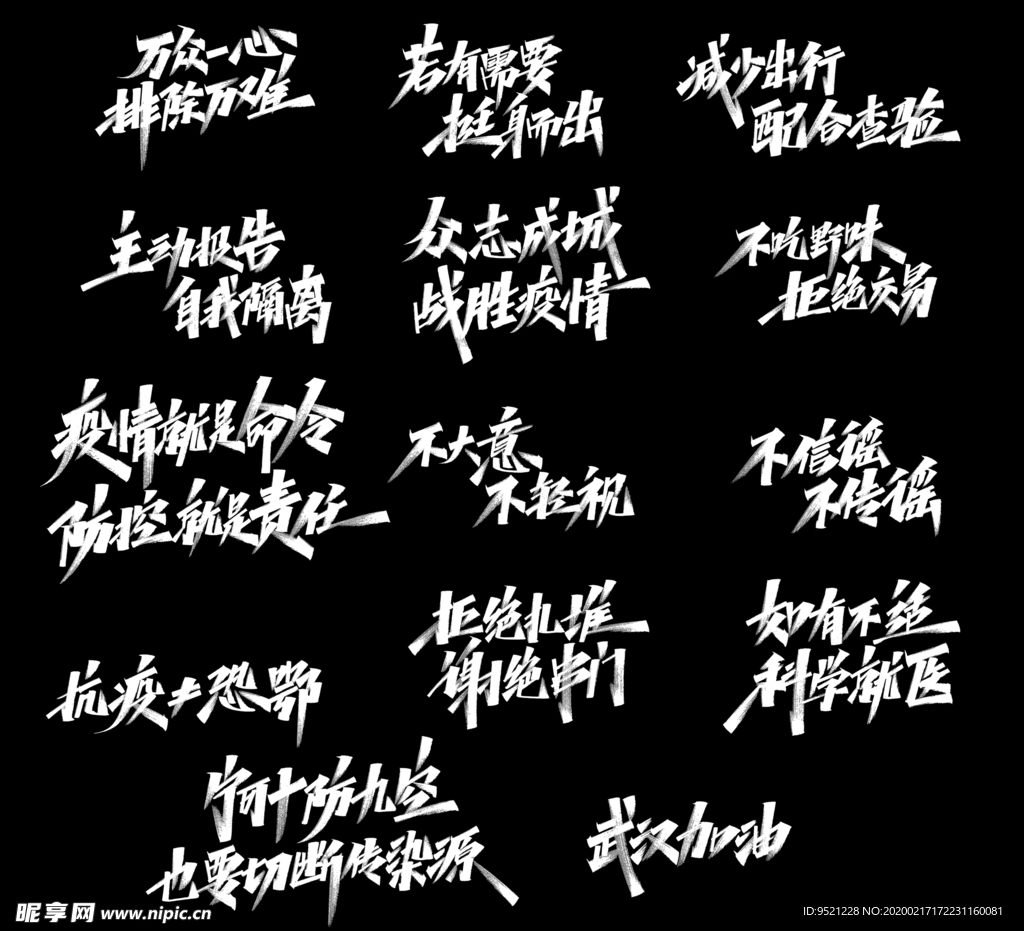 万众一心
排除万难
若有需要
挺身而出
减少出行
配合查验
主动报告
自我隔离
众志成城
战胜疫情
不吃野味
拒绝交易
疫情就是命令
防控就是责任
不大意
不轻视
不信谣
不传谣
抗疫≠恐鄂
拒绝扎堆
谢绝串门
如有不适
科学就医
宁可十防九空
也要切断传染源
武汉加油
昵享网 www.nipic.cn
ID:9521228 NO:20200217172231160081